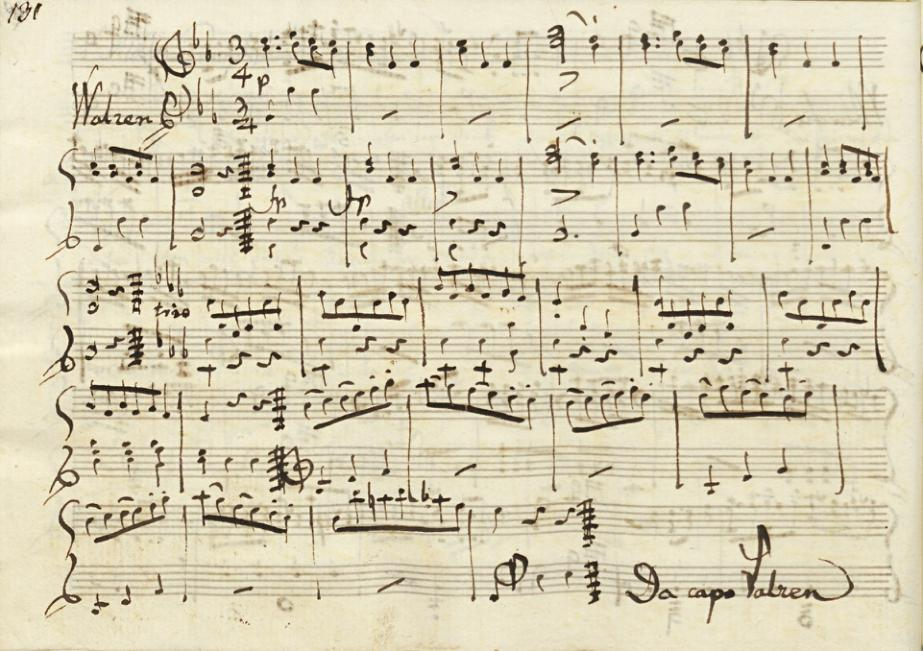 131
3 4 p
Walzen 3 4
fp fp
trio
Da capo Walzen